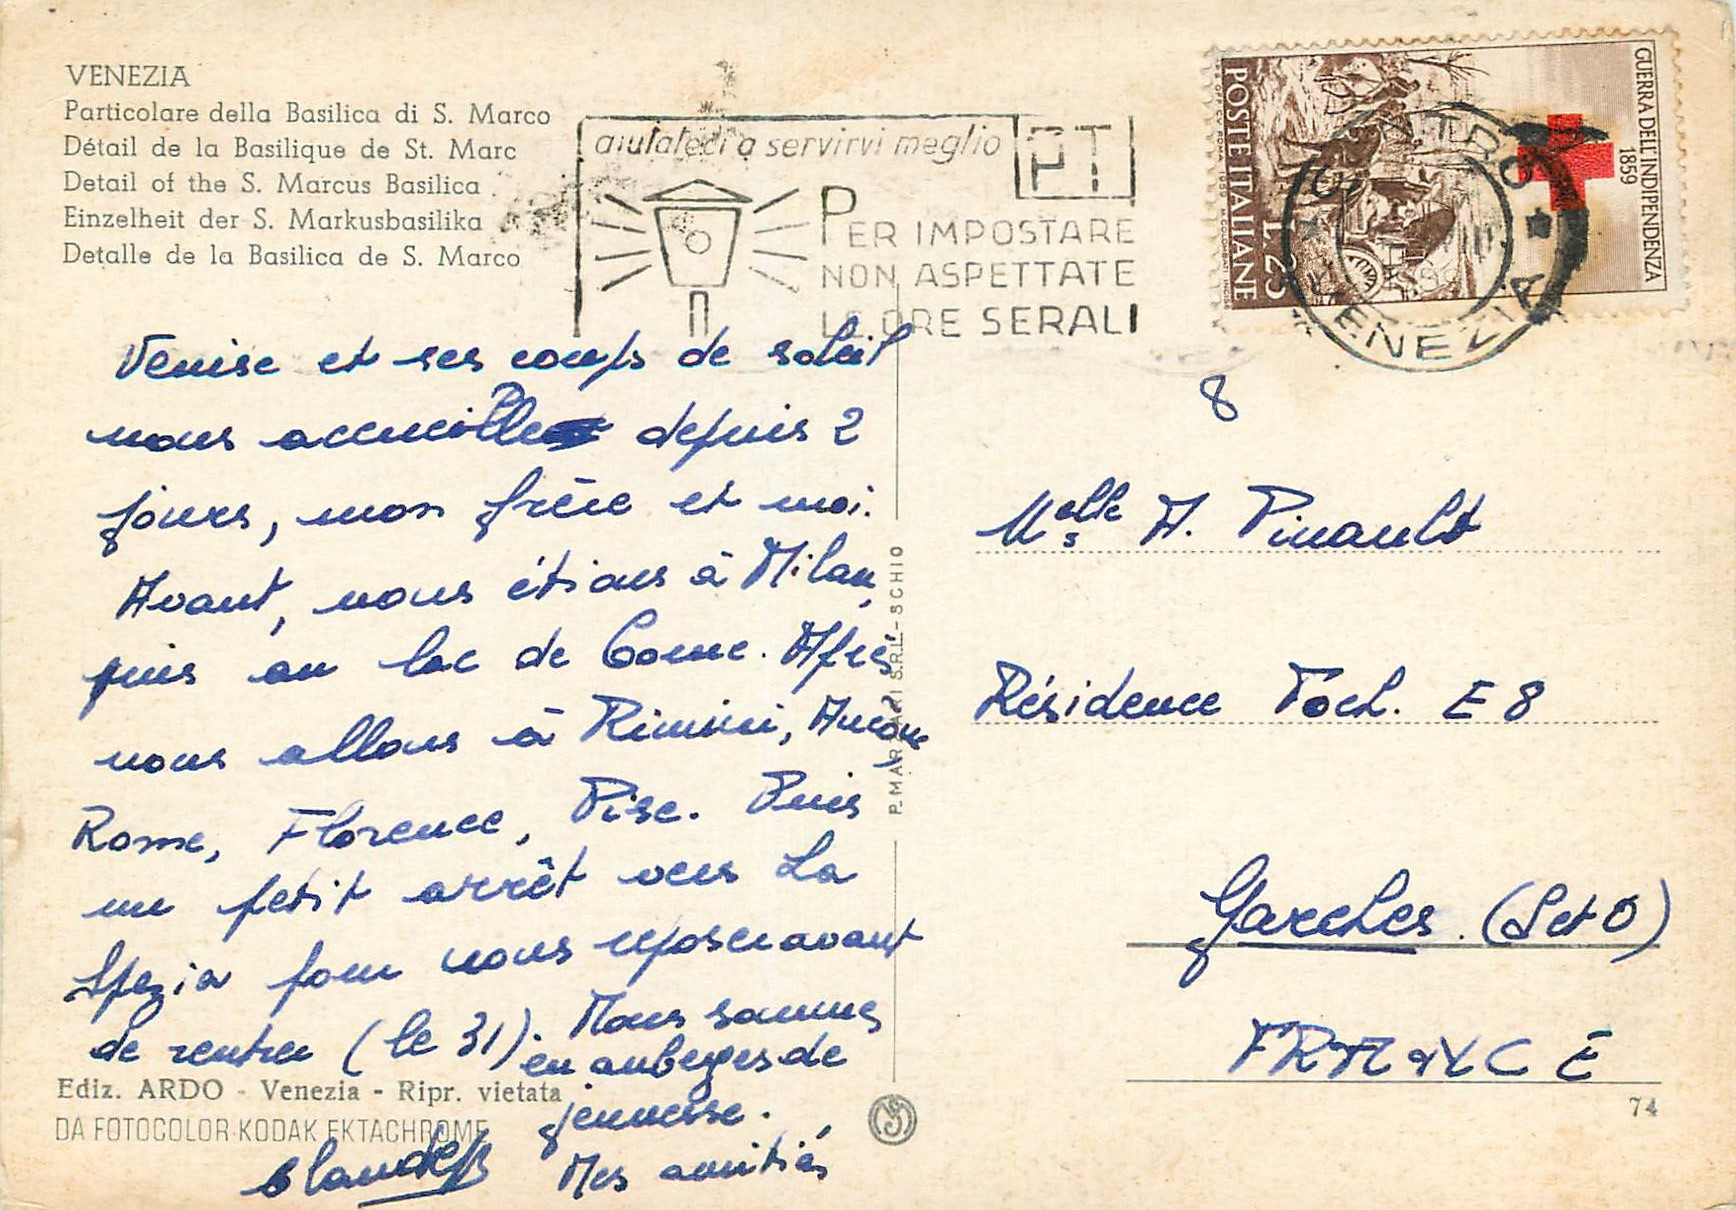 VENEZIA
Particolare della Basilica di S. Marco
Détail de la Basilique de St. Marc
Detail of the S. Marcus Basilica
Einzelheit der S. Markusbasilika
Detalle de la Basilica de S. Marco
aiutateci a servirvi meglio
PT
PER IMPOSTARE
NON ASPETTATE
LE ORE SERALI
POSTE ITALIANE L. 25
GUERRA DELL'INDIPENDENZA
1859
VENEZIA
Venise et ses coups de soleil
nous accueille depuis 2
jours, mon frère et moi.
Avant, nous étions à Milan,
puis au lac de Come. Après
nous allons à Rimini, Ancone
Rome, Florence, Pise. Puis
un petit arrêt vers La
Spezia pour nous reposer avant
de rentrer (le 31). Nous sommes
en auberges de
jeunesse.
Mes amitiés
Claude
8
Melle A. Pinault
Résidence Foch. E 8
Garches. (S et O)
FRANCE
P. MARZARI S.R.L. - SCHIO
Ediz. ARDO - Venezia - Ripr. vietata
DA FOTOCOLOR KODAK EKTACHROME
74